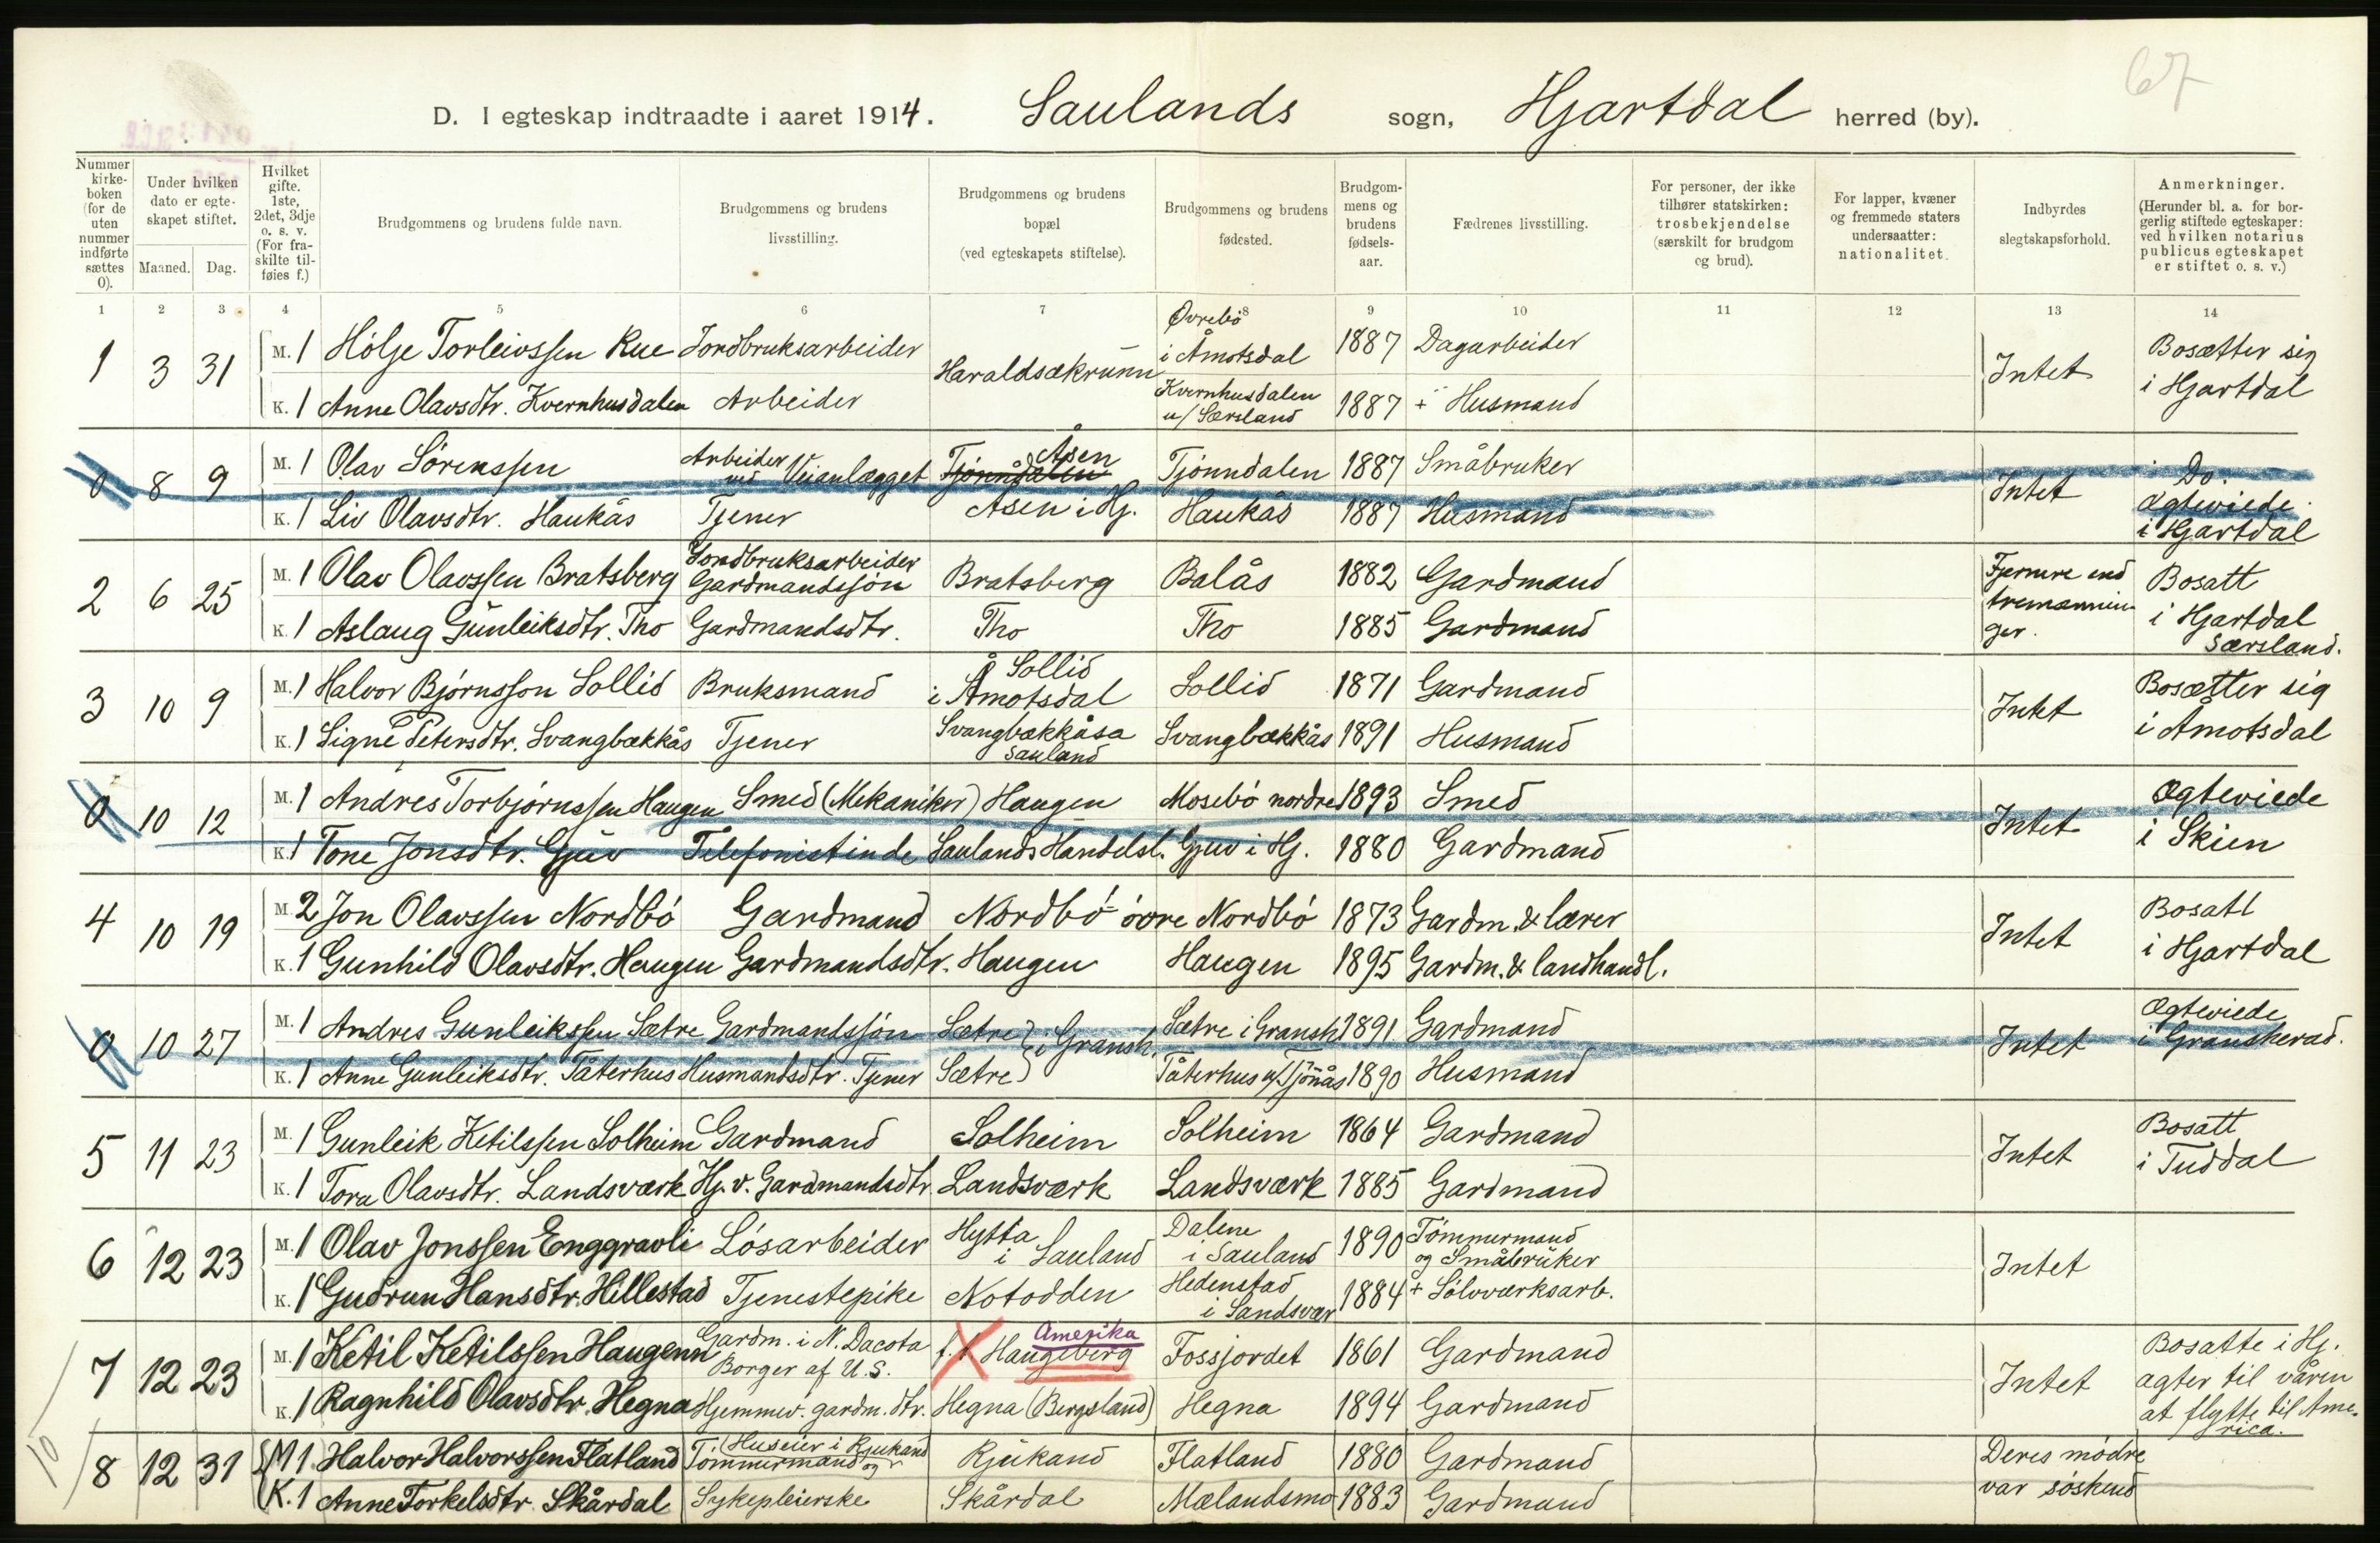 67
D. I egteskap indtraadte i aaret 1914. Saulands sogn, Hjartdal herred (by).
Nummer kirke-boken (for de uten nummer indførte sættes 0).
Under hvilken dato er egte-skapet stiftet.
Maaned. Dag.
Hvilket gifte. 1ste, 2det, 3dje o. s. v. (For fra-skilte til-føies f.)
Brudgommens og brudens fulde navn.
Brudgommens og brudens livsstilling.
Brudgommens og brudens bopæl (ved egteskapets stiftelse).
Brudgommens og brudens fødested.
Brudgom-mens og brudens fødsels-aar.
Fædrenes livsstilling.
For personer, der ikke tilhører statskirken: trosbekjendelse (særskilt for brudgom og brud).
For lapper, kvæner og fremmede staters undersaatter: nationalitet.
Indbyrdes slegtskapsforhold.
Anmerkninger. (Herunder bl. a. for bor-gerlig stiftede egteskaper: ved hvilken notarius publicus egteskapet er stiftet o. s. v.)
1 2 3 4 5 6 7 8 9 10 11 12 13 14
1 3 31 M. 1 Hølje Torleivssen Rue Jordbruksarbeider Haraldsækrunn Øvrebø i Åmotsdal 1887 Dagarbeider Intet Bosætter sig i Hjartdal
K. 1 Anne Olavsdtr. Kvernhusdalen Arbeider Kvernhusdalen u/ Særsland 1887 + Husmand
0 8 9 M. 1 Olav Sørenssen Arbeider ved Veianlægget Tjønndalen Åsen Tjønndalen 1887 Småbruker Intet Do. Ægteviede i Hjartdal
K. 1 Liv Olavsdtr. Haukås Tjener Åsen i Hj. Haukås 1887 Husmand
2 6 25 M. 1 Olav Olavssen Bratsberg Jordbruksarbeider Gardmandssjøn Bratsberg Balås 1882 Gardmand Fjernere end tremænninger. Bosatt i Hjartdal Særsland.
K. 1 Aslaug Gunleiksdtr. Tho Gardmandsdtr. Tho Tho 1885 Gardmand
3 10 9 M. 1 Halvor Bjørnsson Sollid Bruksmand Sollid i Åmotsdal Sollid 1871 Gardmand Intet Bosætter sig i Åmotsdal
K. 1 Signe Petersdtr. Svangbækkås Tjener Svangbækkåsa Sauland Svangbækkås 1891 Husmand
0 10 12 M. 1 Andres Torbjørnssen Haugen Smed (Mekaniker) Haugen Mosebø nordre 1893 Smed Intet Ægteviede i Skien
K. 1 Tone Jonsdtr. Gjuv Telefonistinde Saulands Handelsl. Gjuv i Hj. 1880 Gardmand
4 10 19 M. 2 Jon Olavssen Nordbø Gardmand Nordbø øvre Nordbø 1873 Gardm. & lærer Intet Bosatt i Hjartdal
K. 1 Gunhild Olavsdtr. Haugen Gardmandsdtr. Haugen Haugen 1895 Gardm. & landhandl.
0 10 27 M. 1 Andres Gunleikssen Sætre Gardmandssjøn Sætre i Gransh. Sætre i Gransh. 1891 Gardmand Intet Ægteviede i Granskerad.
K. 1 Anne Gunleiksdtr. Tåterhus Husmandsdtr. Tjener Sætre Tåterhus u/ Tjønnås 1890 Husmand
5 11 23 M. 1 Gunleik Ketilssen Solheim Gardmand Solheim Solheim 1864 Gardmand Intet Bosatt i Tuddal
K. 1 Tora Olavsdtr. Landsværk Hj. v. Gardmandsdtr. Landsværk Landsværk 1885 Gardmand
6 12 23 M. 1 Olav Jonssen Enggravli Løsarbeider Hytta i Sauland Dalene i Sauland 1890 Tømmermand og Småbruker Intet
K. 1 Gudrun Hansdtr. Hillestad Tjenestepike Notodden Hedenstad i Sandsvær 1884 + Sølvværksarb.
7 12 23 M. 1 Ketil Ketilssen Haugenn Gardm. i N. Dacota Borger af U.S. f.t. Haugeberg Amerika Fossjordet 1861 Gardmand Intet Bosatte i Hj. agter til våren at flytte til America.
K. 1 Ragnhild Olavsdtr. Hegna Hjemmev. gardm. dtr. Hegna (Bergsland) Hegna 1894 Gardmand
10
8 12 31 M 1 Halvor Halvorssen Flatland Tømmermand og (Huseier i Rjukand Rjukand Flatland 1880 Gardmand Deres mødre var søskend
K. 1 Anne Torkelsdtr. Skårdal Sykepleierske Skårdal Mælandsmo 1883 Gardmand